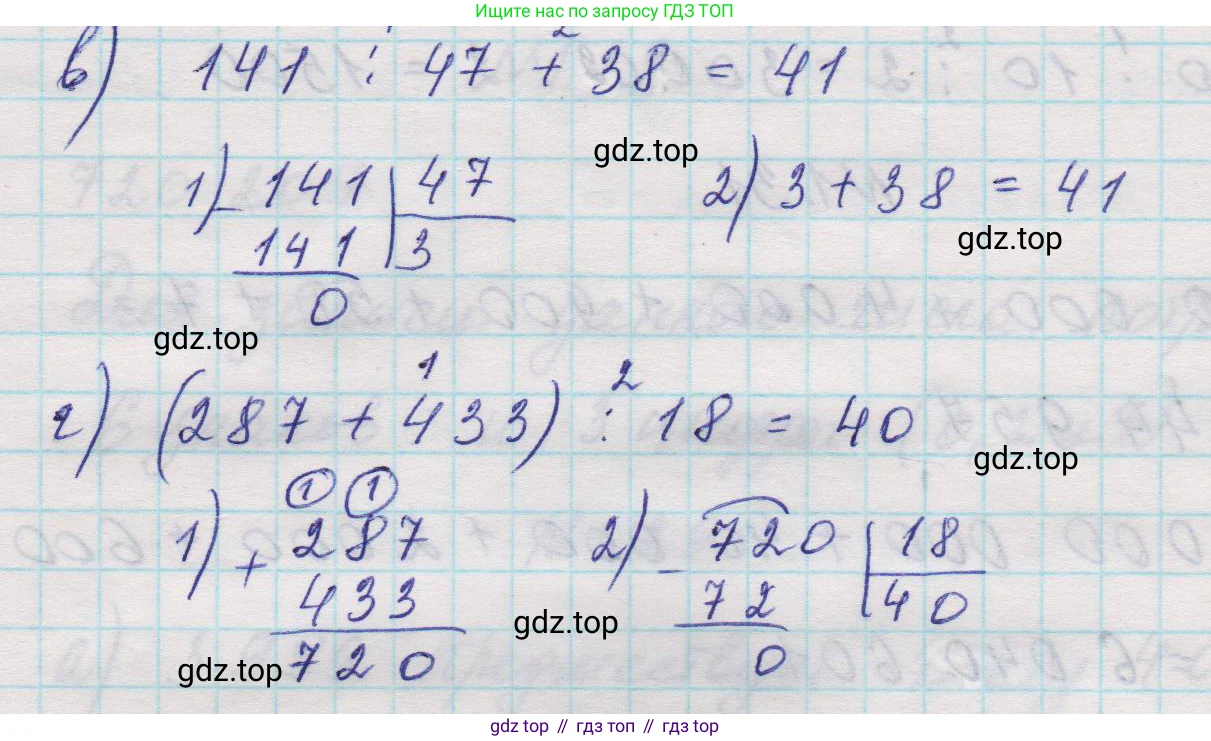 Ищите нас по запросу ГДЗ ТОП
1 2
в) 141 : 47 + 38 = 41
gdz.top
1) - 141 | 47
141 | 3
0
2) 3 + 38 = 41
gdz.top
gdz.top
1 2
г) (287 + 433) : 18 = 40
gdz.top
1 1
1) + 287
433
720
2) - 720 | 18
72 | 40
0
gdz.top
gdz.top
gdz top // гдз топ // gdz top